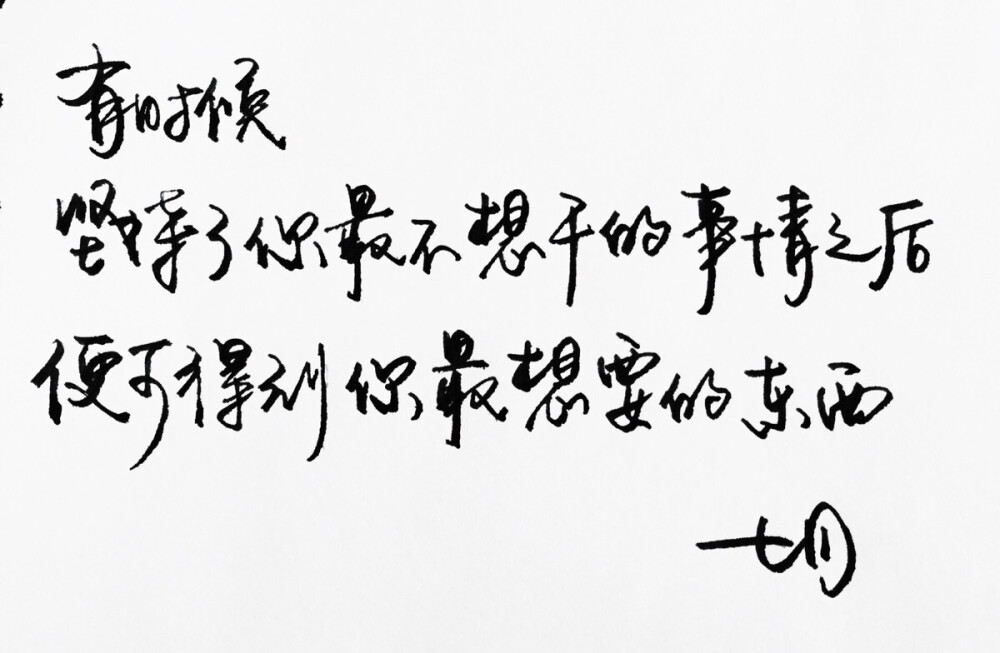 有时候
坚持了你最不想干的事情之后
便可得到你最想要的东西
七月